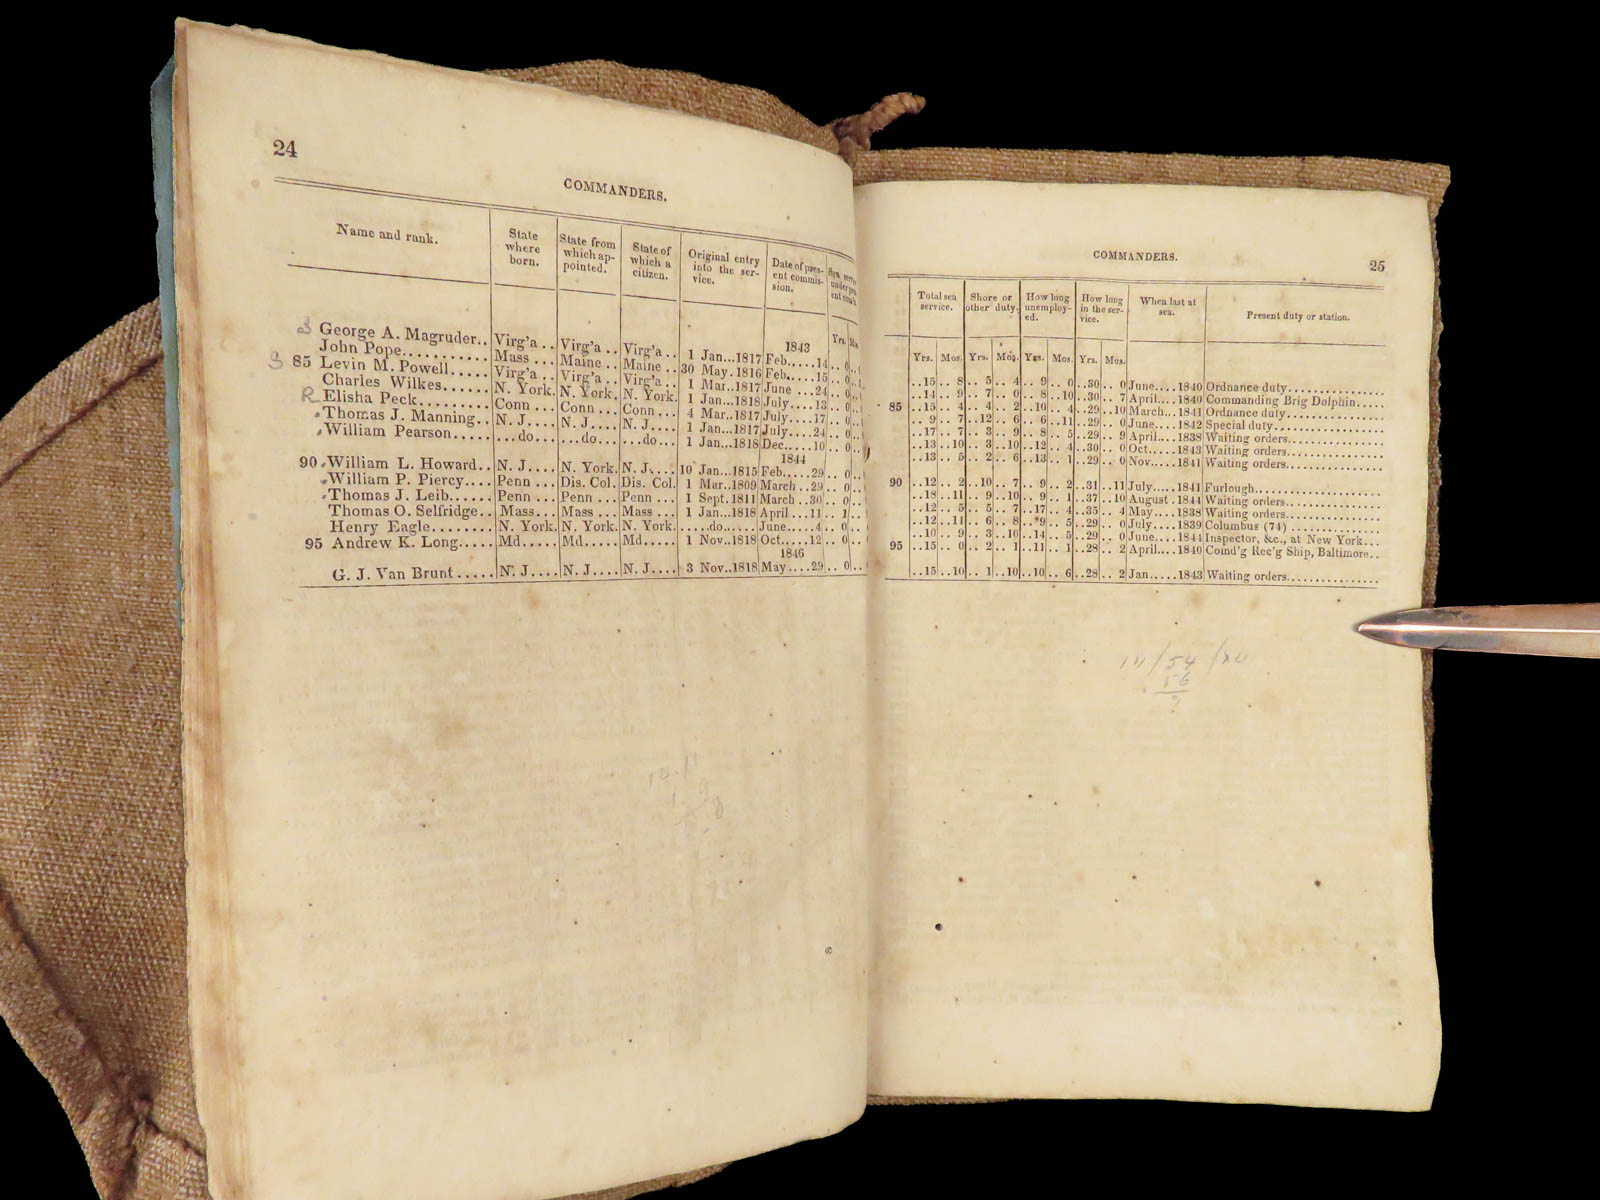 24
COMMANDERS.
Name and rank. State where born. State from which appointed. State of which a citizen. Original entry into the service. Date of present commission.
1843
George A. Magruder.. Virg'a .. Virg'a .. Virg'a .. 1 Jan...1817 Feb.....14 .. 0
John Pope........... Mass ... Maine .. Maine .. 30 May. 1816 Feb.....15 .. 0
85 Levin M. Powell..... Virg'a .. Virg'a .. Virg'a .. 1 Mar..1817 June ...24 .. 0
Charles Wilkes...... N. York. N. York. N. York. 1 Jan..1818 July....13 .. 0
R Elisha Peck........ Conn ... Conn ... Conn ... 4 Mar..1817 July....17 .. 0
Thomas J. Manning.. N. J.... N. J.... N. J.... 1 Jan...1817 July....24 .. 0
William Pearson..... ...do... ...do... ...do... 1 Jan...1818 Dec....10 .. 0
1844
90 William L. Howard.. N. J.... N. York. N. J.... 10 Jan...1815 Feb....29 .. 0
William P. Piercy.... Penn ... Dis. Col. Dis. Col. 1 Mar..1809 March ..29 .. 0
Thomas J. Leib...... Penn ... Penn ... Penn ... 1 Sept.1811 March ..30 .. 0
Thomas O. Selfridge.. Mass.... Mass ... Mass ... 1 Jan...1818 April....11 .. 1
Henry Eagle........ N. York. N. York. N. York. .....do...... June.....4 .. 0
95 Andrew K. Long..... Md..... Md..... Md..... 1 Nov..1818 Oct.....12 .. 0
1846
G. J. Van Brunt ..... N. J.... N. J.... N. J.... 3 Nov..1818 May....29 .. 0
COMMANDERS.
25
Total sea service. Shore or other duty. How long unemployed. How long in the service. When last at sea. Present duty or station.
Yrs. Mos. Yrs. Mos. Yrs. Mos. Yrs. Mos.
..15 .. 8 .. 5 .. 4 .. 9 .. 0 ..30 .. 0 June....1840 Ordnance duty...............
..14 .. 9 .. 7 .. 0 .. 8 ..10 ..30 .. 7 April....1840 Commanding Brig Dolphin.....
85 ..15 .. 4 .. 4 .. 2 ..10 .. 4 ..29 ..10 March...1841 Ordnance duty...............
.. 9 .. 7 ..12 .. 6 .. 6 ..11 ..29 .. 0 June....1842 Special duty................
..17 .. 7 .. 3 .. 9 .. 8 .. 5 ..29 .. 9 April....1838 Waiting orders..............
..13 ..10 .. 3 ..10 ..12 .. 4 ..30 .. 0 Oct.....1843 Waiting orders..............
..13 .. 5 .. 2 .. 6 ..13 .. 1 ..29 .. 0 Nov.....1841 Waiting orders..............
90 ..12 .. 2 ..10 .. 7 .. 9 .. 2 ..31 ..11 July.....1841 Furlough....................
..18 ..11 .. 9 ..10 .. 9 .. 1 ..37 ..10 August..1844 Waiting orders..............
..12 .. 5 .. 5 .. 7 ..17 .. 4 ..35 .. 4 May.....1838 Waiting orders..............
..12 ..11 .. 6 .. 8 .. 9 .. 5 ..29 .. 0 July.....1839 Columbus (74) ..............
..10 .. 9 .. 3 ..10 ..14 .. 5 ..29 .. 0 June....1844 Inspector, &c., at New York...
95 ..15 .. 0 .. 2 .. 1 ..11 .. 1 ..28 .. 2 April....1840 Comd'g Rec'g Ship, Baltimore..
..15 ..10 .. 1 ..10 ..10 .. 6 ..28 .. 2 Jan.....1843 Waiting orders..............